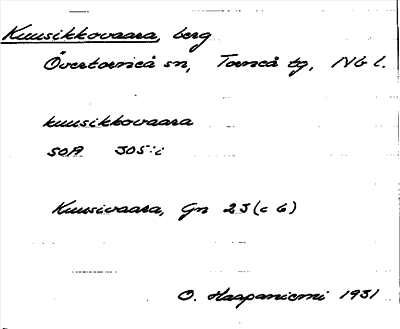 Kuusikkovaara, berg
Övertorneå sn, Torneå tg, Nb l.
kuusikkovaara
SOA 305:i
Kuusivaara, Gn 23 (c 6)
O. Haapaniemi 1931